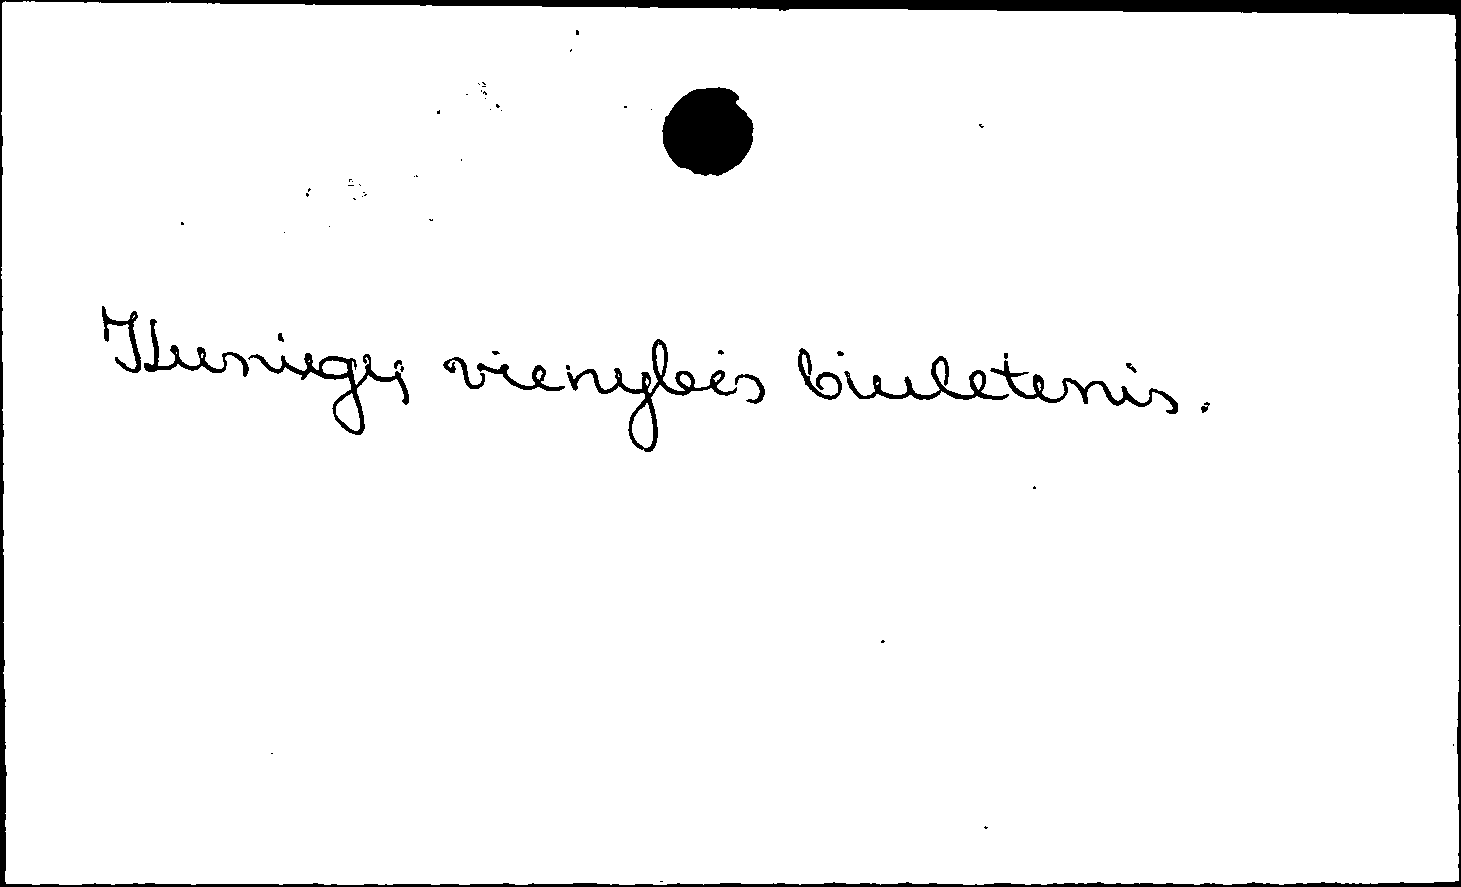 Kunigų vienybės biuletenis.